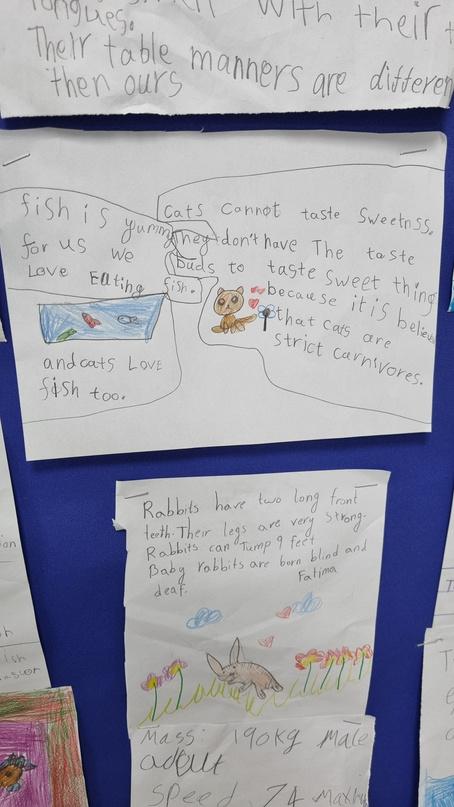 tongues.
with their
Their table manners are differen
then ours
fish is yummy
for us we
Love Eating
fish.
and cats Love
fish too.
Cats Cannot taste Sweetnss.
They don't have The taste
buds to taste sweet thing
because it is believ
that cats are
strict carnivores.
Rabbits have two long front
teeth. Their legs are very strong.
Rabbits can Jump 9 feet
Baby rabbits are born blind and
deaf.
Fatima
Mass: 190kg Male
adult
Speed 74 Maxim